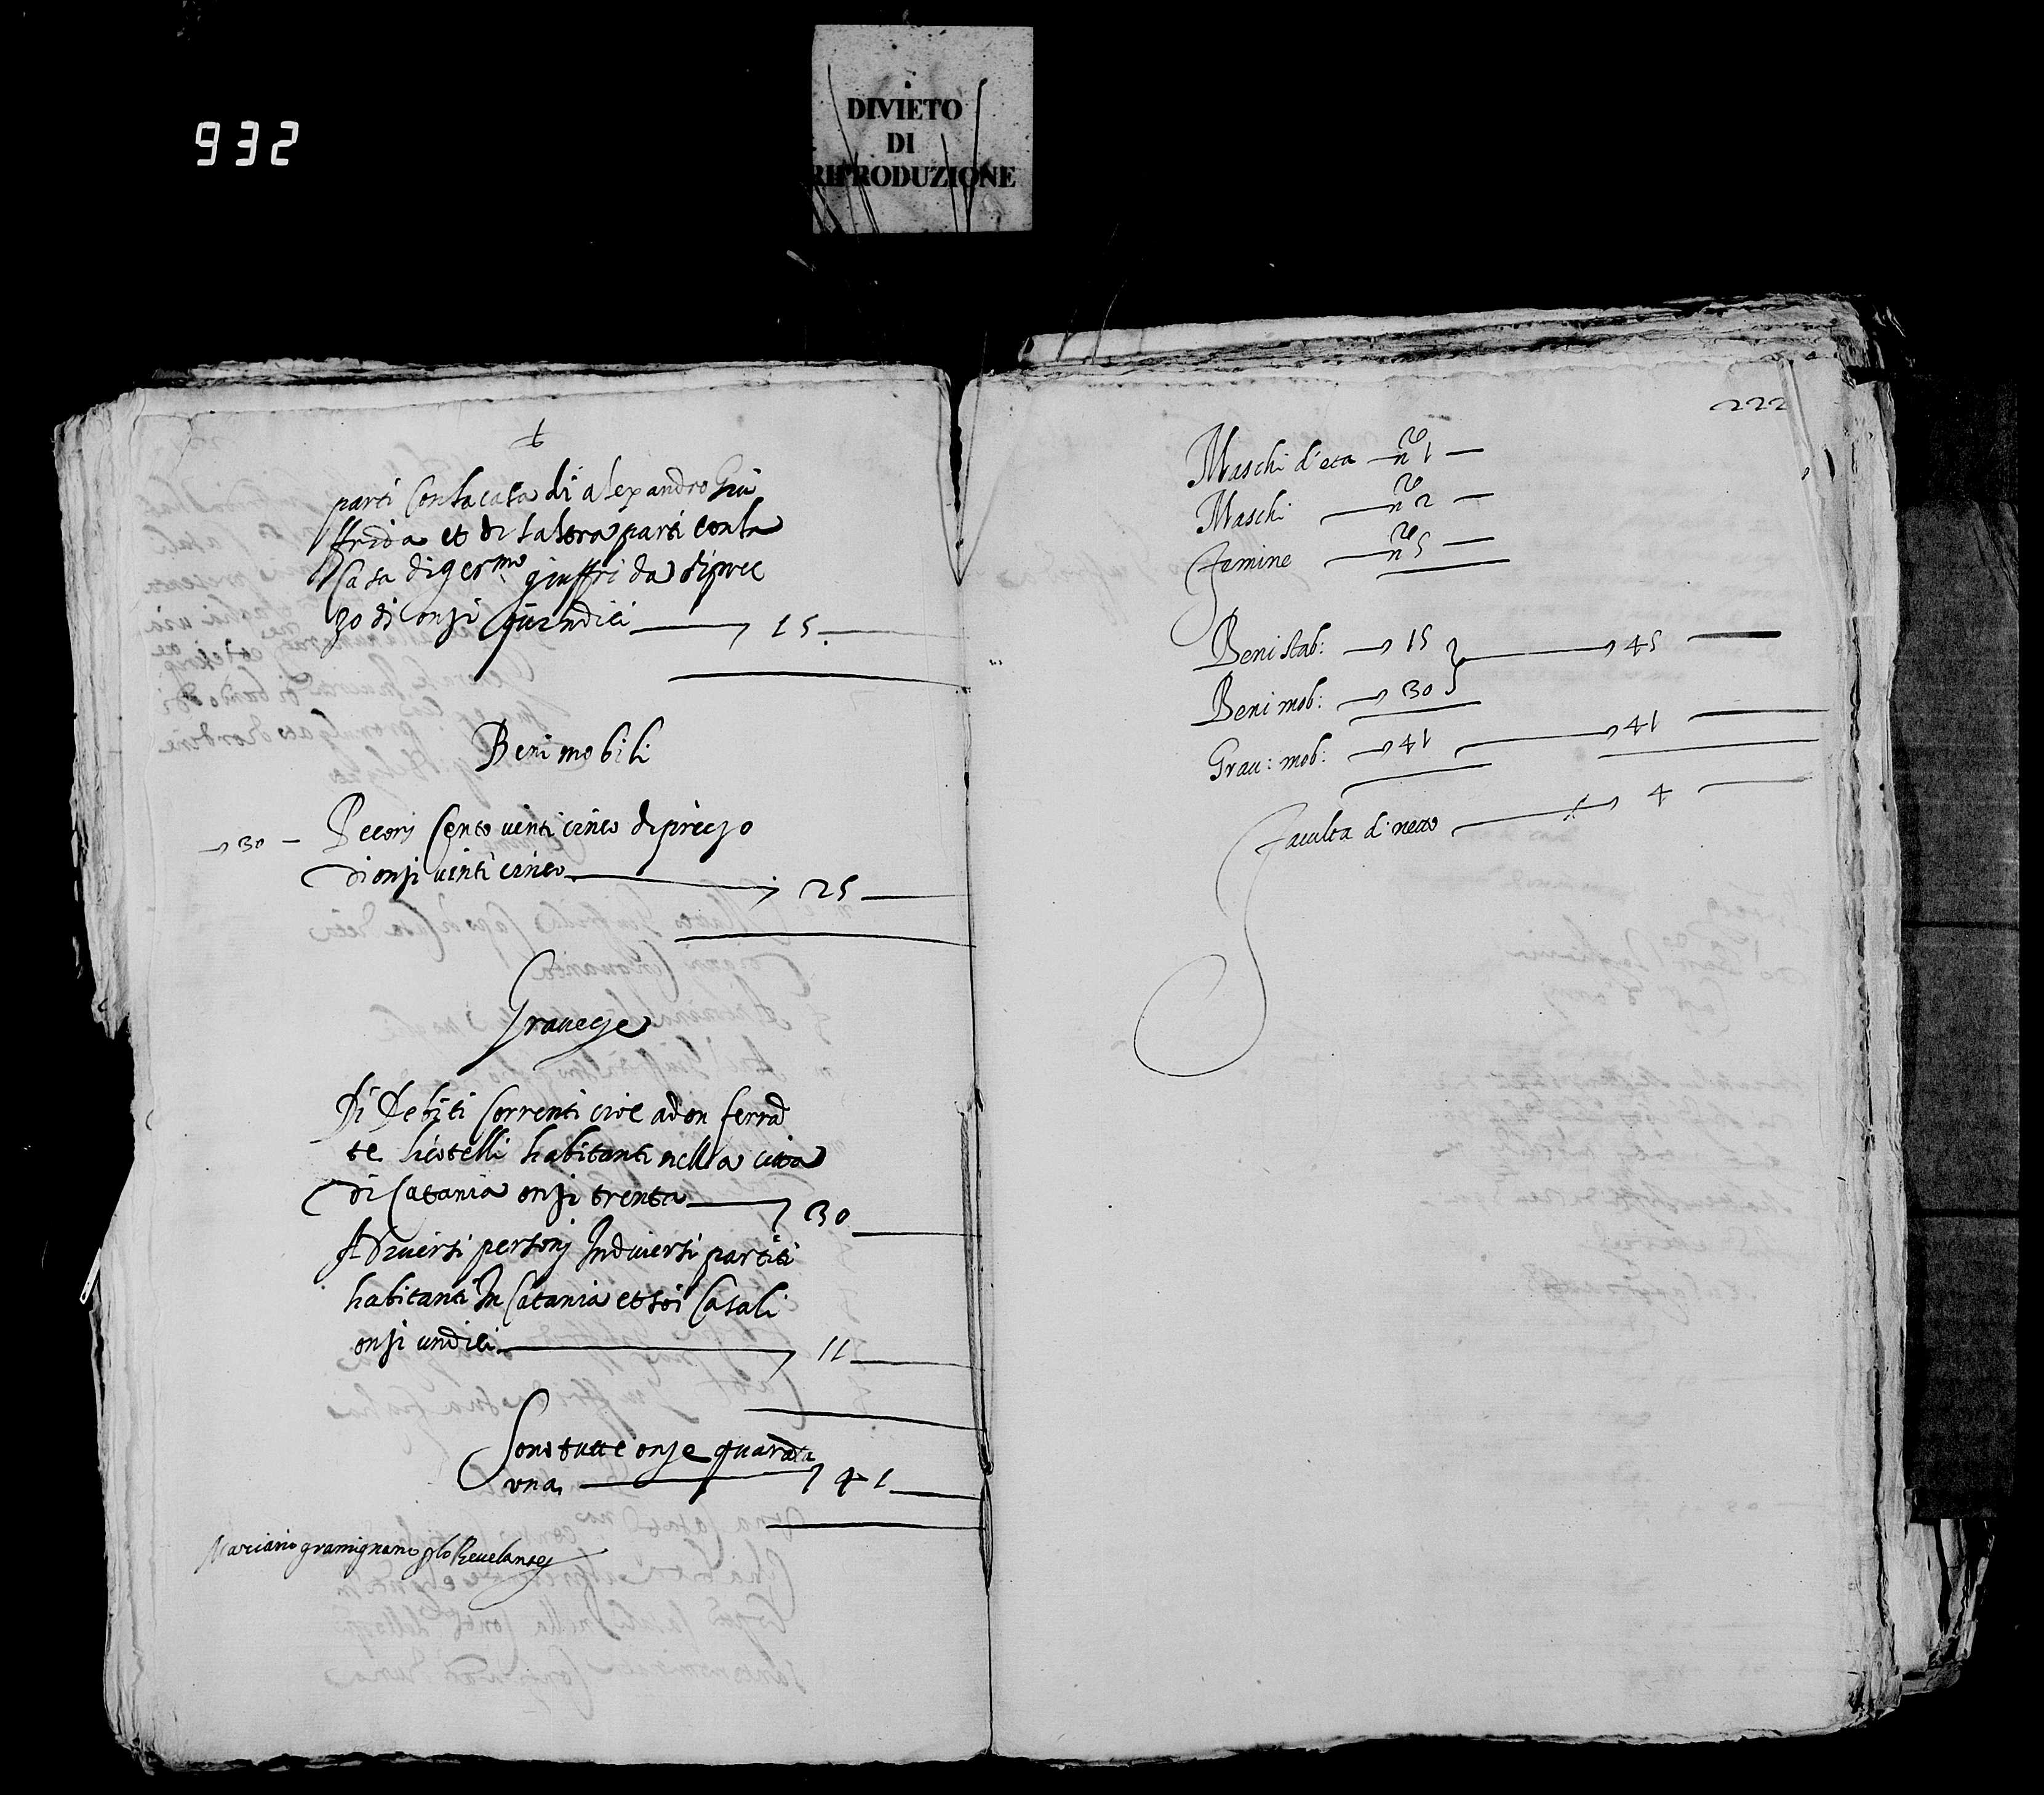 932
DIVIETO
DI
RIPRODUZIONE
parti con la casa di alexandro Giu
ffrida et di laltra parti con la
Casa di ger.mo giuffrida di prec
zo di onzi quindici 15
Beni mobili
30 Pecori Cento venti cinco di preczo
di onzi vinti cinco 25
Graveze
Di Debiti Correnti cioe a don ferra
te licotelli habitanti nella citta
di Catania onzi trenta 30
A diversi personi In diversi partiti
habitanti In Catania et soi Casali
onzi undici 11
Sono tutte onze quaranta
una 41
Mariano gramignano p lo Revelante
222
Maschi d'eta n.ro 1
Maschi n.ro 2
Femine n.ro 5
Beni stab: 15 45
Beni mob: 30
Grav: mob: 41 41
Faculta di netto 4